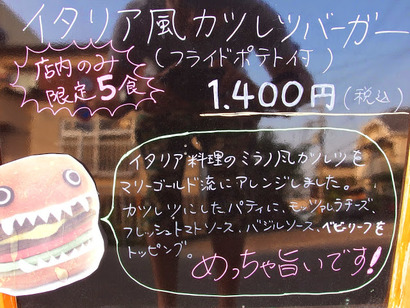 イタリア風カツレツバーガー
(フライドポテト付)
店内のみ
限定5食
1.400円(税込)
イタリア料理のミラノ風カツレツを
マリーゴールド流にアレンジしました。
カツレツにしたパティに、モッツァレラチーズ、
フレッシュトマトソース、バジルソース、ベビリーフを
トッピング。
めっちゃ旨いです!